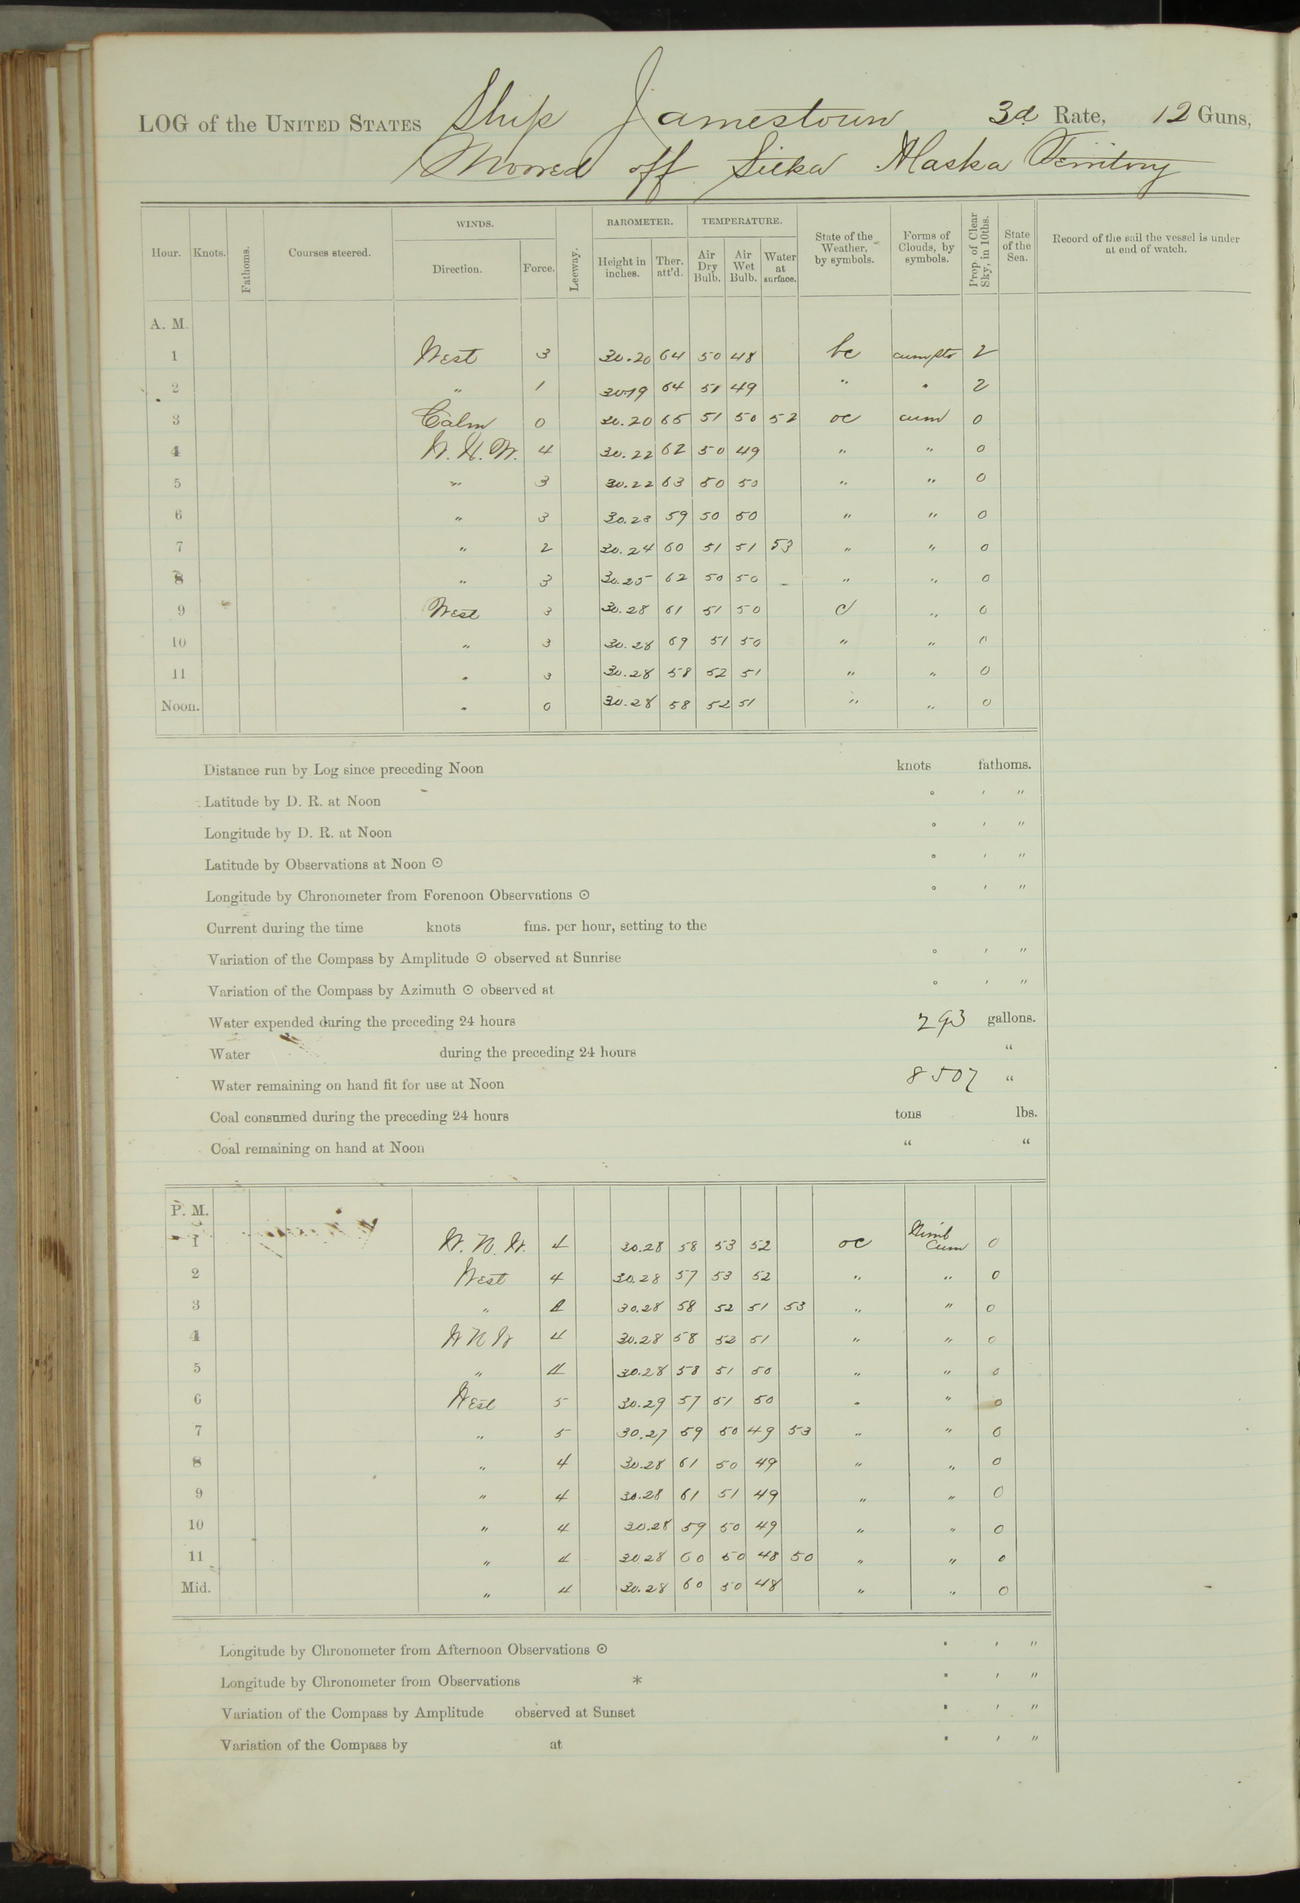 LOG of the UNITED STATES Ship Jamestown 3d Rate, 12 Guns,
Moored off Sitka Alaska Territory
Hour. Knots. Fathoms. Courses steered. WINDS. Direction. Force. Leeway. BAROMETER. Height in inches. Ther. att'd. TEMPERATURE. Air Dry Bulb. Air Wet Bulb. Water at surface. State of the Weather, by symbols. Forms of Clouds, by symbols. Prop. of Clear Sky, in 10ths. State of the Sea. Record of the sail the vessel is under at end of watch.
A. M.
1 West 3 30.20 64 50 48 bc cum/str 2
2 " 1 30.19 64 51 49 " " 2
3 Calm 0 30.20 65 51 50 52 oc cum 0
4 W.N.W. 4 30.22 62 50 49 " " 0
5 " 3 30.22 63 50 50 " " 0
6 " 3 30.23 59 50 50 " " 0
7 " 2 30.24 60 51 51 53 " " 0
8 " 3 30.25 62 50 50 " " 0
9 West 3 30.28 61 51 50 c " 0
10 " 3 30.28 59 51 50 " " 0
11 " 3 30.28 58 52 51 " " 0
Noon. " 0 30.28 58 52 51 " " 0
Distance run by Log since preceding Noon knots fathoms.
Latitude by D. R. at Noon ° ' "
Longitude by D. R. at Noon ° ' "
Latitude by Observations at Noon ⊙ ° ' "
Longitude by Chronometer from Forenoon Observations ⊙ ° ' "
Current during the time knots fms. per hour, setting to the
Variation of the Compass by Amplitude ⊙ observed at Sunrise ° ' "
Variation of the Compass by Azimuth ⊙ observed at ° ' "
Water expended during the preceding 24 hours 293 gallons.
Water during the preceding 24 hours "
Water remaining on hand fit for use at Noon 8507 "
Coal consumed during the preceding 24 hours tons lbs.
Coal remaining on hand at Noon " "
P. M.
1 W.N.W. 4 30.28 58 53 52 oc Nimb Cum 0
2 West 4 30.28 57 53 52 " " 0
3 " 4 30.28 58 52 51 53 " " 0
4 WNW 4 30.28 58 52 51 " " 0
5 " 4 30.28 58 51 50 " " 0
6 West 5 30.29 57 51 50 " " 0
7 " 5 30.27 59 50 49 53 " " 0
8 " 4 30.28 61 50 49 " " 0
9 " 4 30.28 61 51 49 " " 0
10 " 4 30.28 59 50 49 " " 0
11 " 4 30 28 60 50 48 50 " " 0
Mid. " 4 30.28 60 50 48 " " 0
Longitude by Chronometer from Afternoon Observations ⊙ ° ' "
Longitude by Chronometer from Observations * ° ' "
Variation of the Compass by Amplitude observed at Sunset ° ' "
Variation of the Compass by at ° ' "